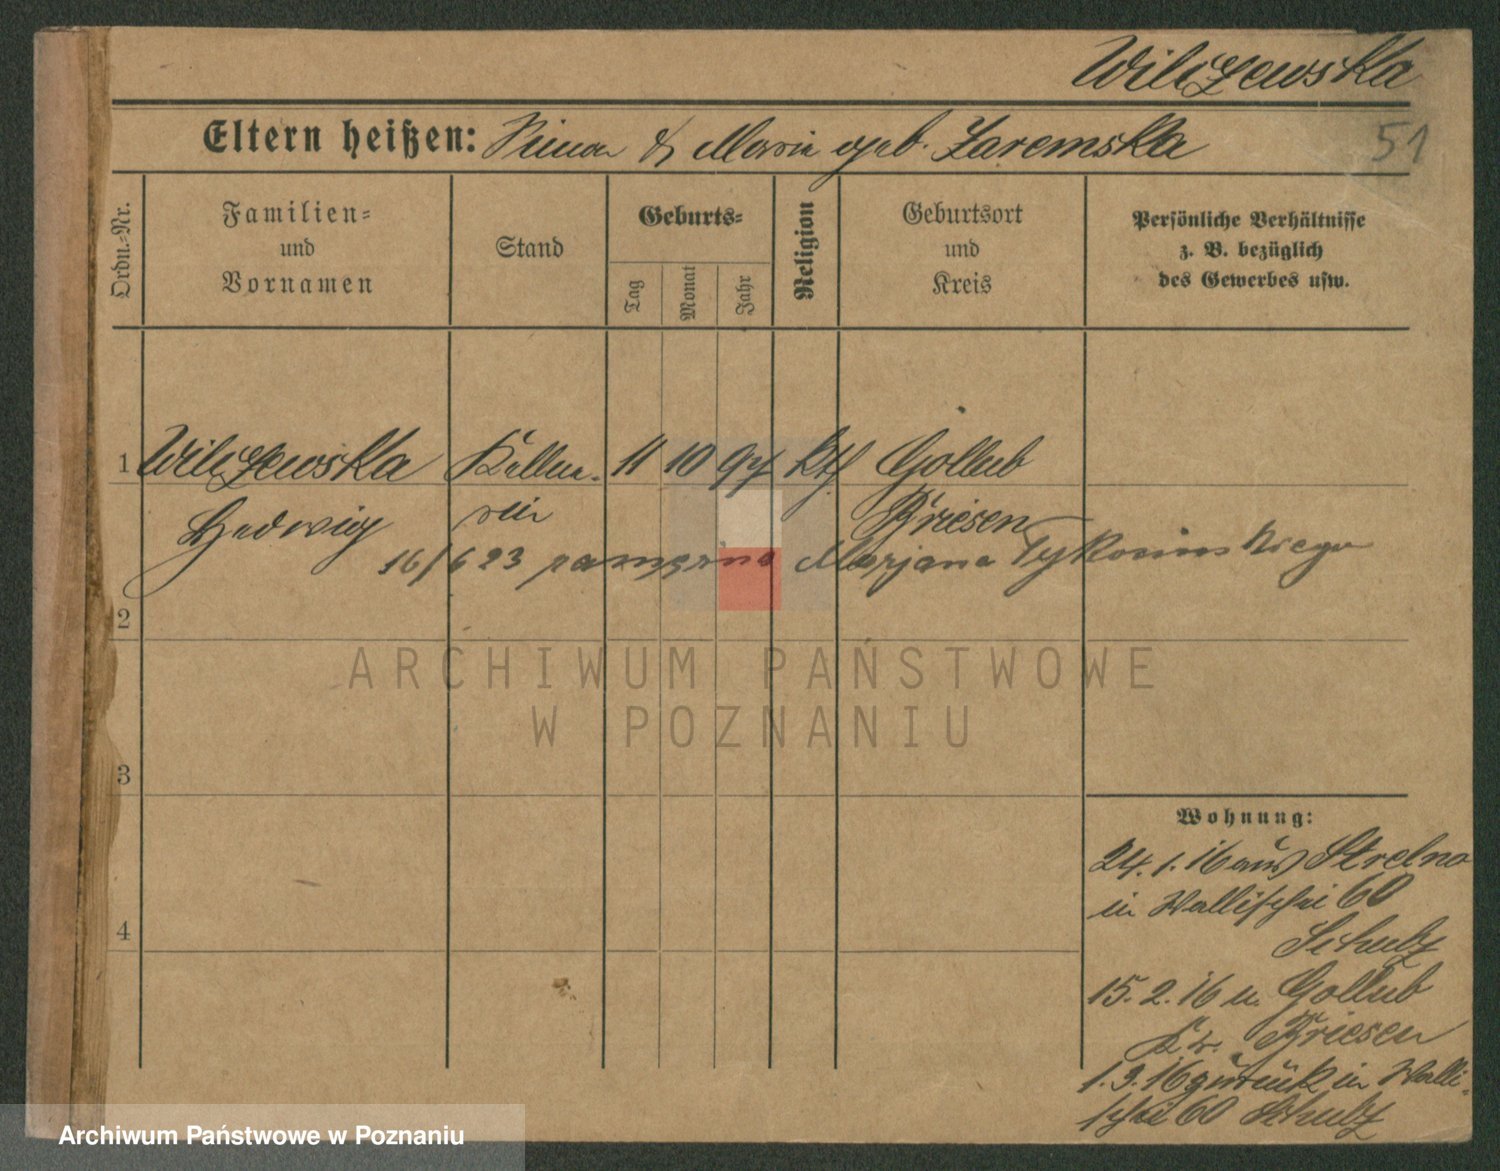 Wilczewska
51
Eltern heißen: & Marie geb. Zaremska
Ordn.-Nr.
Familien-
und
Vornamen
Stand
Geburts-
Tag
Monat
Jahr
Religion
Geburtsort
und
Kreis
Persönliche Verhältnisse
z. B. bezüglich
des Gewerbes usw.
1 Wilczewska Kellne- 11 10 97 kth Gollub
Hedwig rin Briesen
16/6 23 Marjana Tykocinskiego
2
ARCHIWUM PAŃSTWOWE
W POZNANIU
3
4
Wohnung:
24. 1. 16 aus Strelno
in Wallischei 60
Schulz
15. 2. 16 n. Gollub
Kr. Briesen
1. 3. 16 zurück in Walli-
schei 60 Schulz
Archiwum Państwowe w Poznaniu